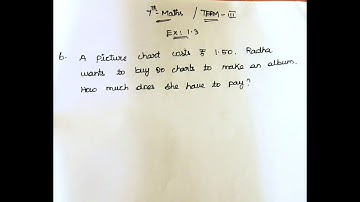 7th - Maths / TERM - III
Ex: 1.3
6. A picture chart costs ₹ 1.50. Radha
wants to buy 20 charts to make an album.
How much does she have to pay?